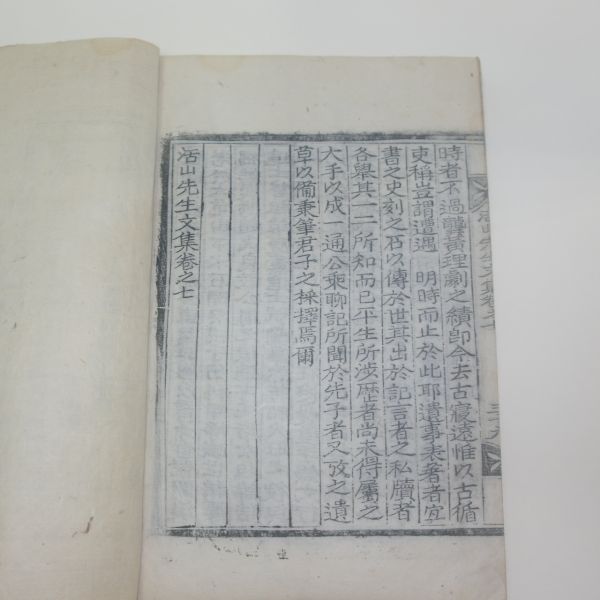 時者不過龔黃理劇之績卽今去古寢遠惟以古循
吏稱豈謂遭遇　明時而止於此耶遺事表著者宜
書之史刻之石以傳於世其出於記言者之私牘者
各舉其一二所知而已平生所涉歷者尚未得屬之
大手以成一通公乘聊記所聞於先子者又攷之遺
草以備秉筆君子之採擇焉爾
活山先生文集卷之七